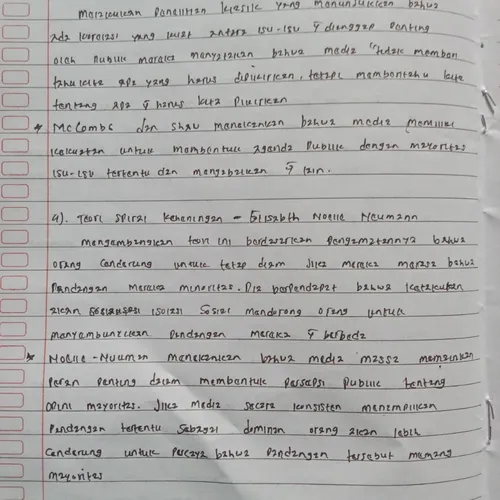 Melakukan Penelitian klasik yang menunjukkan bahwa
ada korelasi yang kuat antara isu-isu yg dianggap penting
oleh Publik mereka menyatakan bahwa media tidak memberi
tahu kita apa yang harus dipikirkan, tetapi memberitahu kita
tentang apa yg harus kita Pikirkan
* McCombs dan Shaw menekankan bahwa media memiliki
kekuatan untuk membentuk agenda Publik dengan menyoroti
isu-isu tertentu dan mengabaikan yg lain.
4). Teori Spiral Keheningan - Elisabth Noelle Neumann
mengembangkan teori ini berdasarkan Pengamatannya bahwa
orang cenderung untuk tetap diam jika mereka merasa bahwa
Pandangan mereka minoritas. Dia berpendapat bahwa ketakutan
akan isolasi Sosial mendorong orang untuk
menyembunyikan Pandangan mereka yg berbeda
* Noelle-Neuman menekankan bahwa media massa memainkan
Peran Penting dalam membentuk Persepsi Publik tentang
opini mayoritas. Jika media secara konsisten menampilkan
Pandangan tertentu sebagai dominan orang akan lebih
Cenderung untuk Percaya bahwa Pandangan tersebut memang
mayoritas